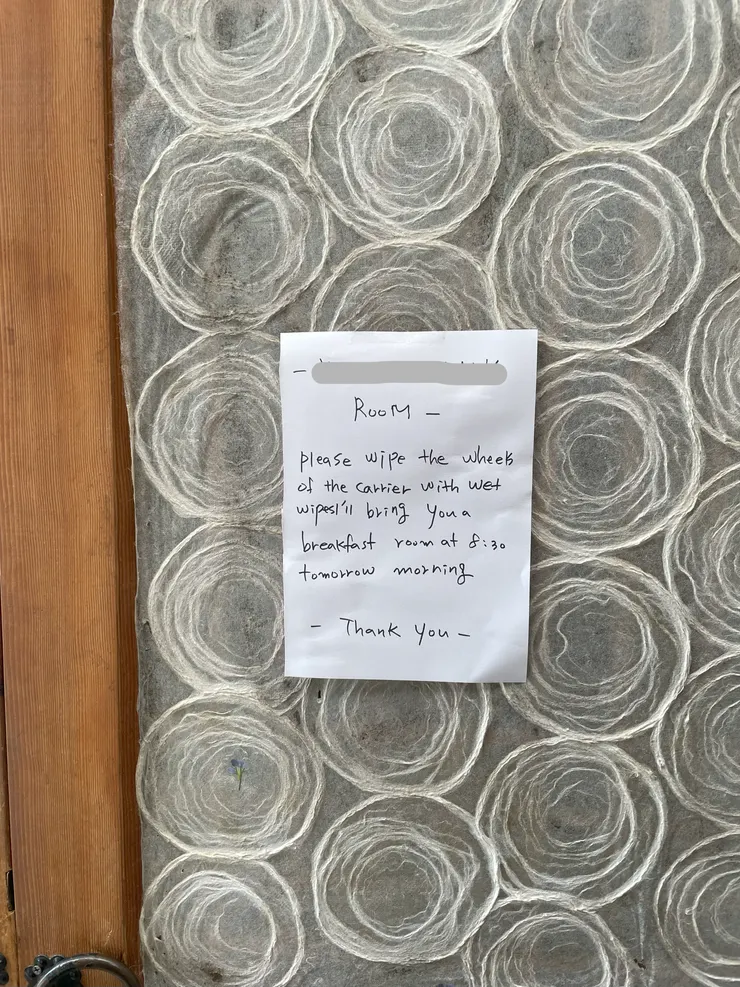 Room -
please wipe the wheels
of the carrier with wet
wipesI'll bring you a
breakfast room at 8:30
tomorrow morning
- Thank you -